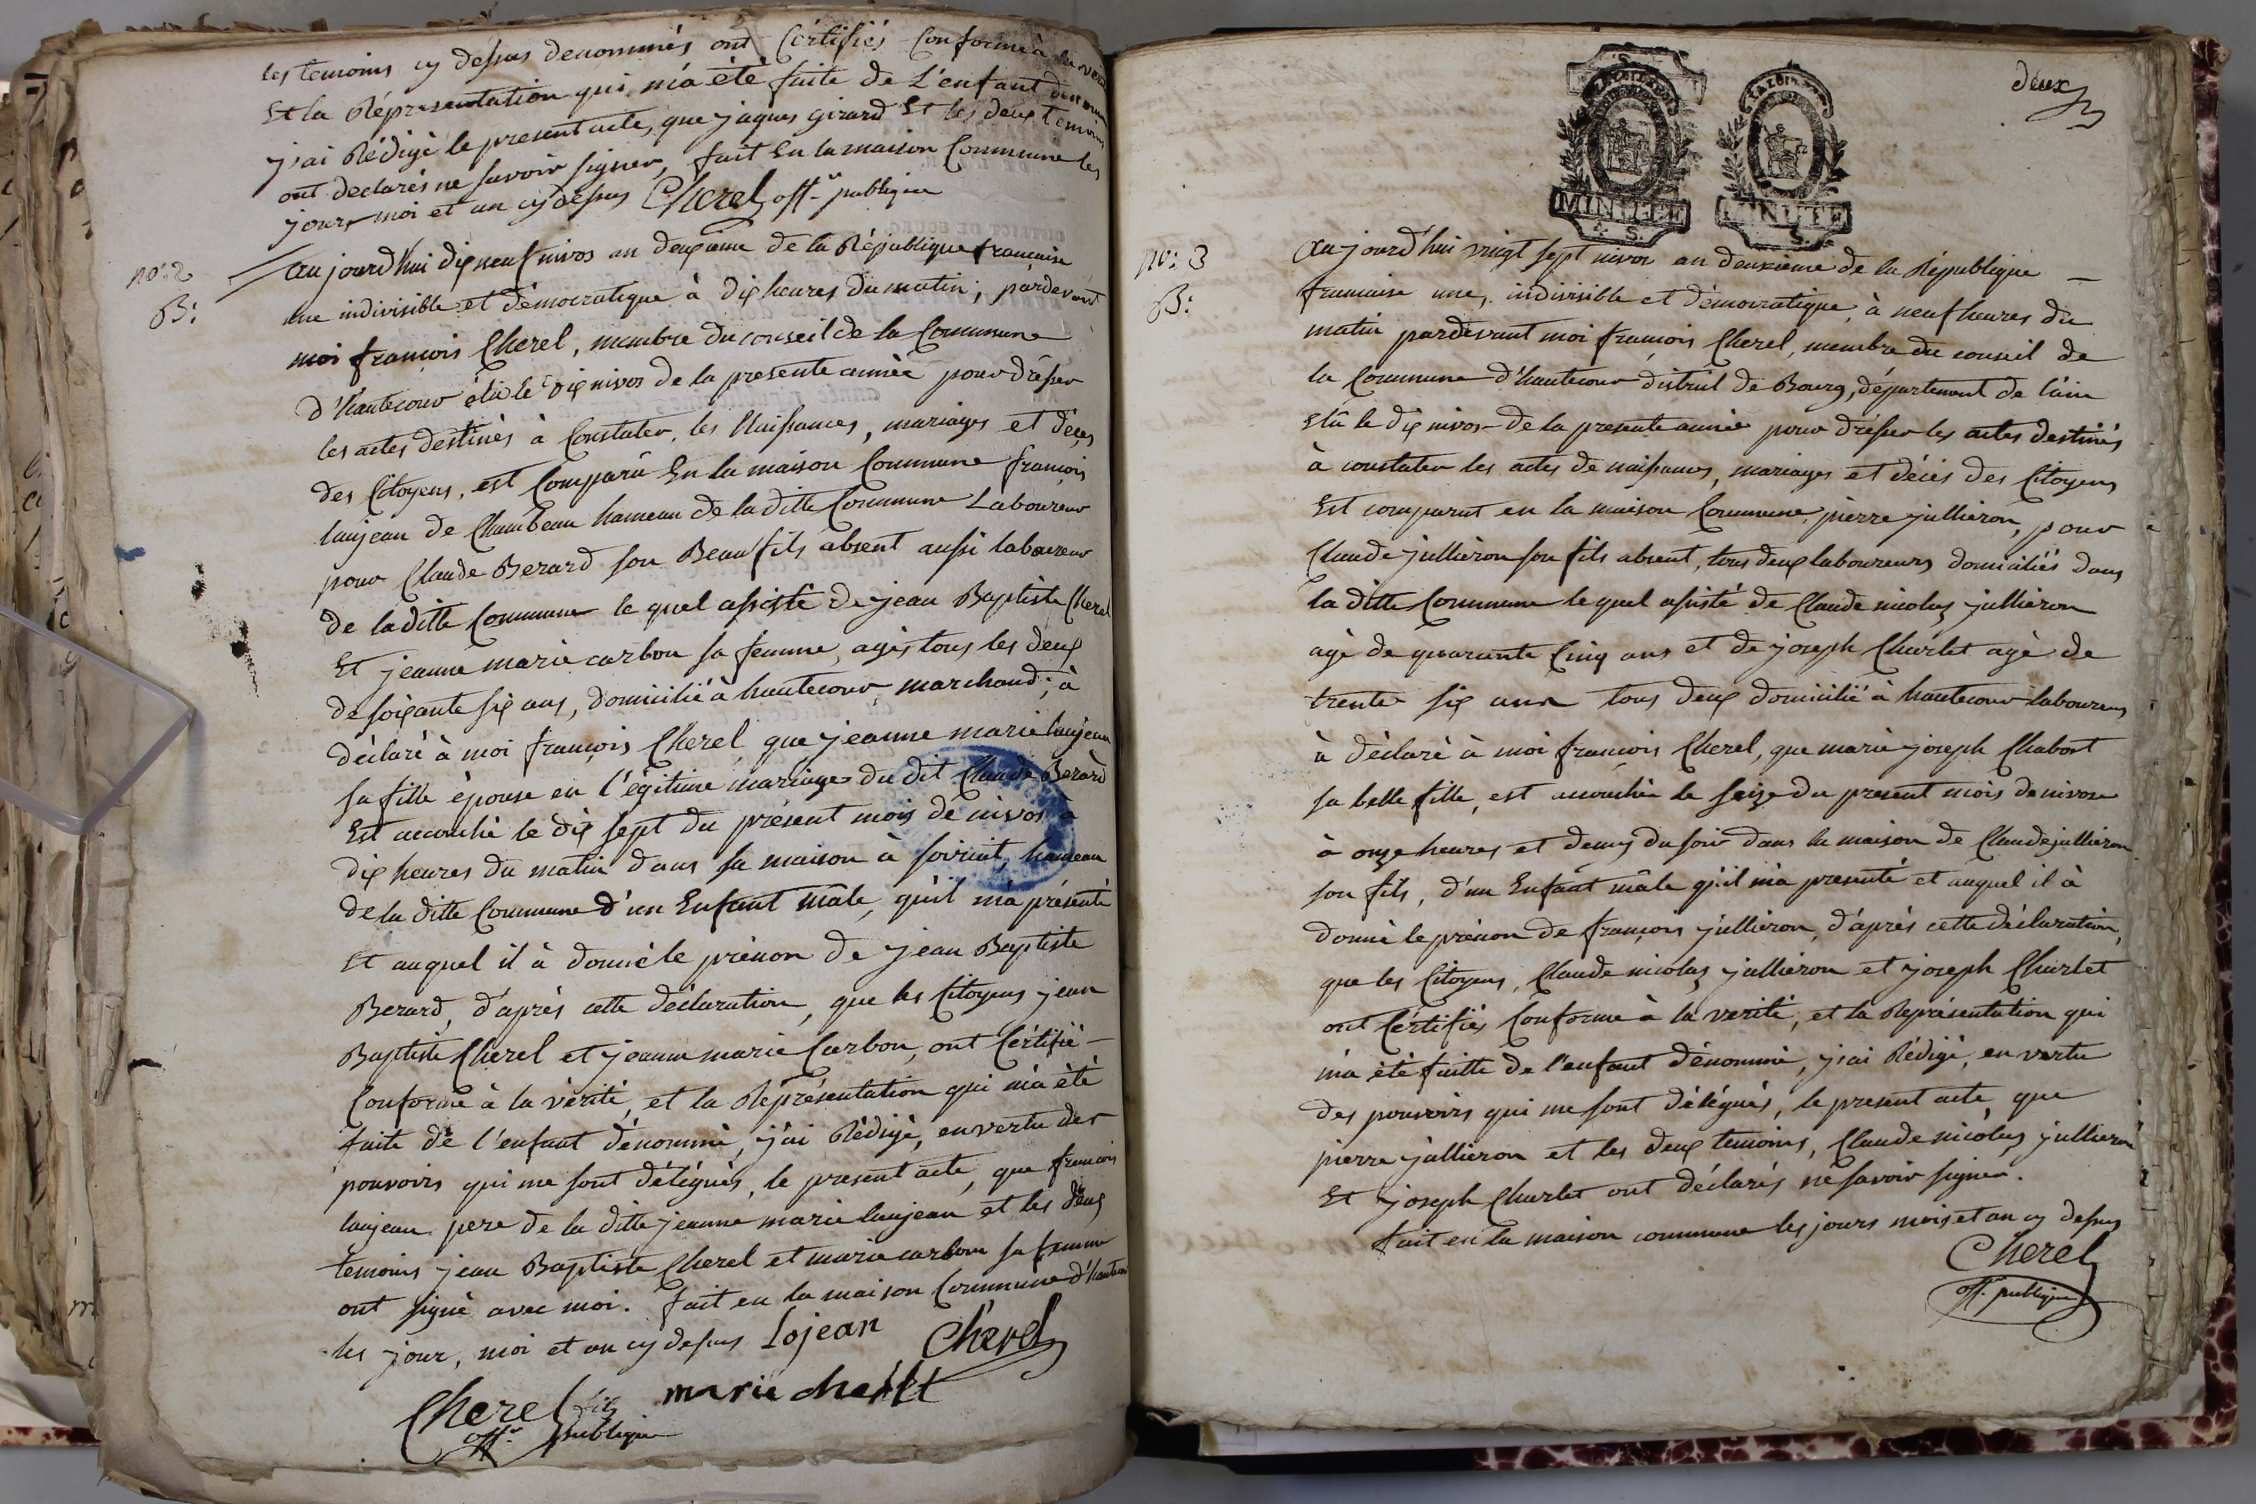 les temoins cy dessus denommés ont Certifiés Conforme à la
Et la Réprésentation qui m'a été faite de L'enfant
j'ai Rédigé le present acte, que jaques girard Et les deux temoins
ont declarés ne savoir signer, fait En la maison Commune les
jour, moi et an cy dessus Cherel off. publique
no: 2
B:
Aujourd'hui dix neuf nivos an deuxieme de la République francaise
une indivisible et démocratique à dix heures du matin, pardevant
moi françois Cherel, membre du conseil de la Commune
d'hautecour élu le dix nivos de la presente année pour drésser
les actes destinés à Constater, les Naissances, mariages et décés
des Citoyens, est Comparû En la maison Commune françois
laujean de Chambeau hameau de la ditte Commune Laboureur
pour Claude Berard son Beau fils absent aussi laboureur
de la ditte Commune le quel assisté de jean Baptiste Cherel
Et jeanne marie carbon sa femme, agés tous les deux
de soixante six ans, domicilié à hautecour, marchand, à
déclaré à moi françois Cherel que jeanne marie laujean
sa fille épouse en l'égitime mariage du dit Claude Berard
Est accouché le dix sept du présent mois de nivos à
dix heures du matin dans sa maison à hameau
de la ditte Commune d'un Enfant mâle, qu'il m'a présenté
Et auquel il à donné le prénon de jean Baptiste
Berard, d'aprés cette déclaration, que les Citoyens jean
Baptiste Cherel et jeanne marie Carbon, ont Cértifié
Conforme à la vérité, et la Réprésentation qui m'a été
faite de l'enfant dénommé, j'ai Rédigé, en vertu des
pouvoirs qui me sont délégués, le present acte, que francois
laujean pere de la ditte jeanne marie laujean et les deux
temoins jean Baptiste Cherel et marie carbon sa femme
ont signé avec moi. fait en la maison Commune
les jour, moi et an cy dessus Lojean Cherel
Cherel marie
off. publique
deux
MINUTE MINUTE
S. S.
no: 3
B:
Aujourd'hui vingt sept nivos an deuxieme de la République
francaise une, indivisible et démocratique, à neuf heures du
matin pardevant moi françois Cherel, membre du conseil de
la Commune d'hautecour district de Bourg, département de l'ain
Elû le dix nivos de la presente année pour drésser les actes destinés
à constater les actes de naissances, mariages et décés des Citoyens
Est comparut en la maison Commune, pierre jullieron, pour
Claude jullieron son fils absent, tous deux laboureurs domiciliés dans
la ditte Commune lequel assisté de Claude nicolas jullieron
agé de quarante Cinq ans et de joseph Churlet agé de
trente six ans tous deux domicilié à hautecour laboureurs
à déclaré à moi françois Cherel, que marie joseph Chabort
sa belle fille, est accouchée le seize du present mois de nivose
à onze heures et demy du soir dans la maison de Claude jullieron
son fils, d'un Enfant mâle qu'il m'a presenté et auquel il à
donné le prénon de françois jullieron, d'aprés cette déclaration,
que les Citoyens, Claude nicolas jullieron et joseph Churlet
ont Cértifiés Conforme à la verité, et la Représentation qui
m'a été faitte de l'enfant dénommé, j'ai Rédigé, en vertu
des pouvoirs qui me sont délégués, le present acte, que
pierre jullieron et les deux temoins, Claude nicolas jullieron
Et joseph Churlet ont déclarés ne savoir signer.
fait en la maison commune les jours mois et an cy dessus
Cherel
off. publique